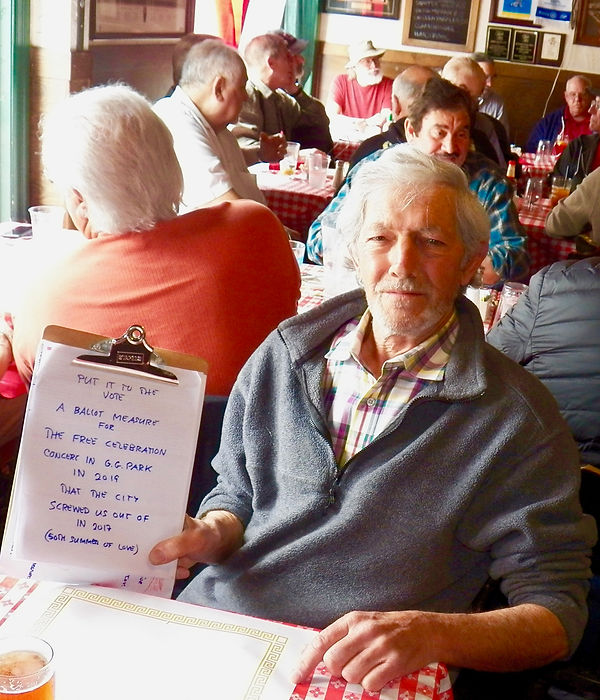 PUT IT TO THE
VOTE
A BALLOT MEASURE
FOR
THE FREE CELEBRATION
CONCERT IN G.G. PARK
IN 2019
THAT THE CITY
SCREWED US OUT OF
IN 2017
(50TH SUMMER OF LOVE)